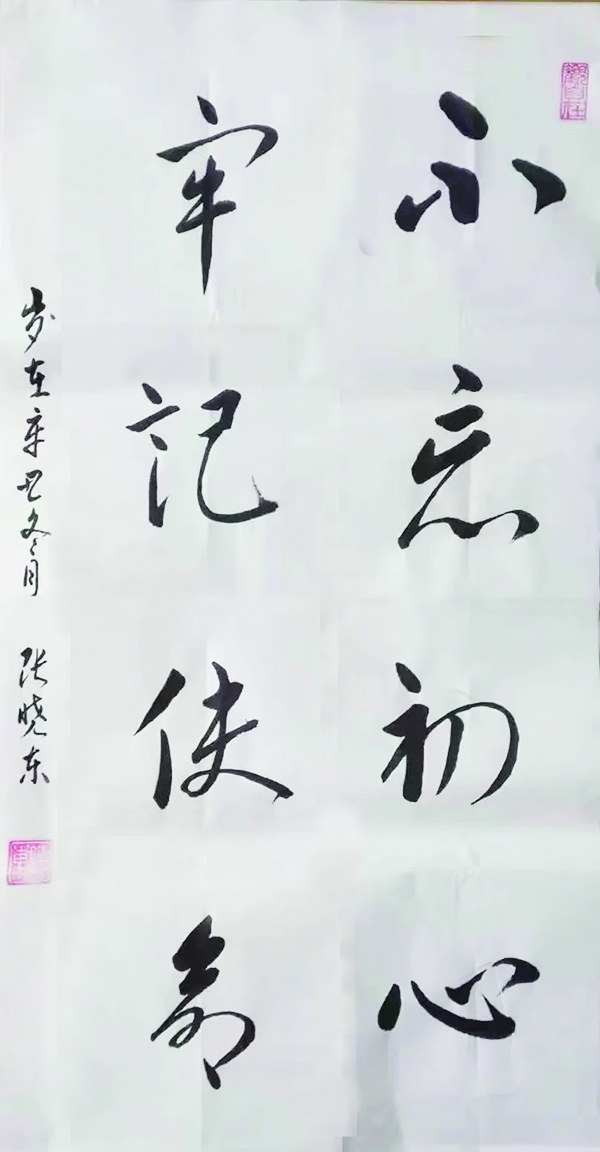 不忘初心
牢记使命
岁在辛丑冬月 张晓东
观自在